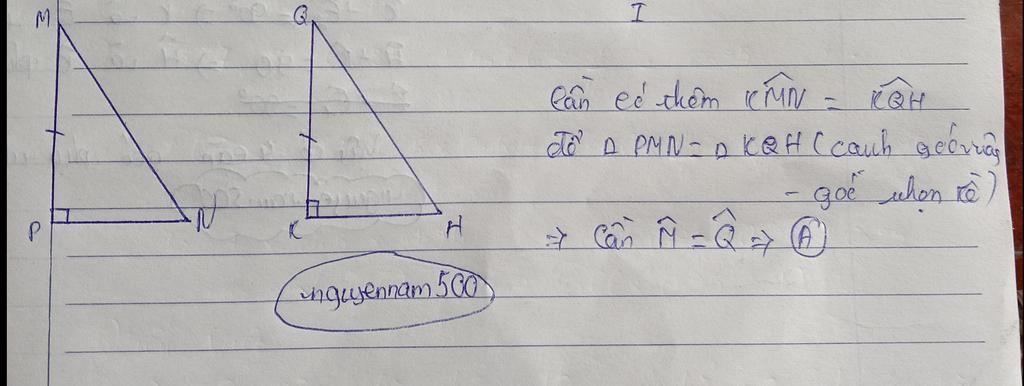 M
Q
I
Cần có thêm KMN = KQH
để Δ PMN = Δ KQH (cạnh góc vuông
- góc nhọn kề)
P
N
K
H
⇒ Cần M̂ = Q̂ ⇒ A
nguyennam500